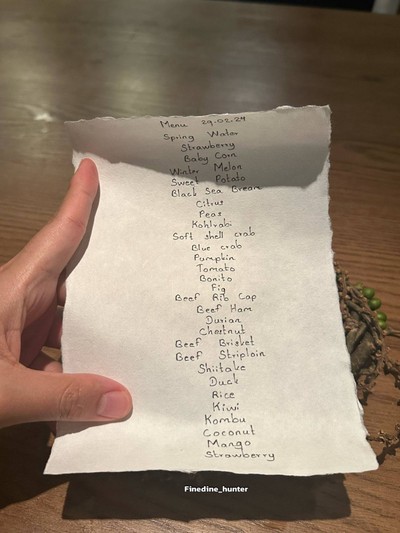 Menu 29.02.24
Spring Water
Strawberry
Baby Corn
Winter Melon
Sweet Potato
Black Sea Bream
Citrus
Peas
Kohlrabi
Soft shell crab
Blue crab
Pumpkin
Tomato
Bonito
Fig
Beef Rib Cap
Beef Ham
Durian
Chestnut
Beef Brisket
Beef Striploin
Shiitake
Duck
Rice
Kiwi
Kombu
Coconut
Mango
Strawberry
Finedine_hunter